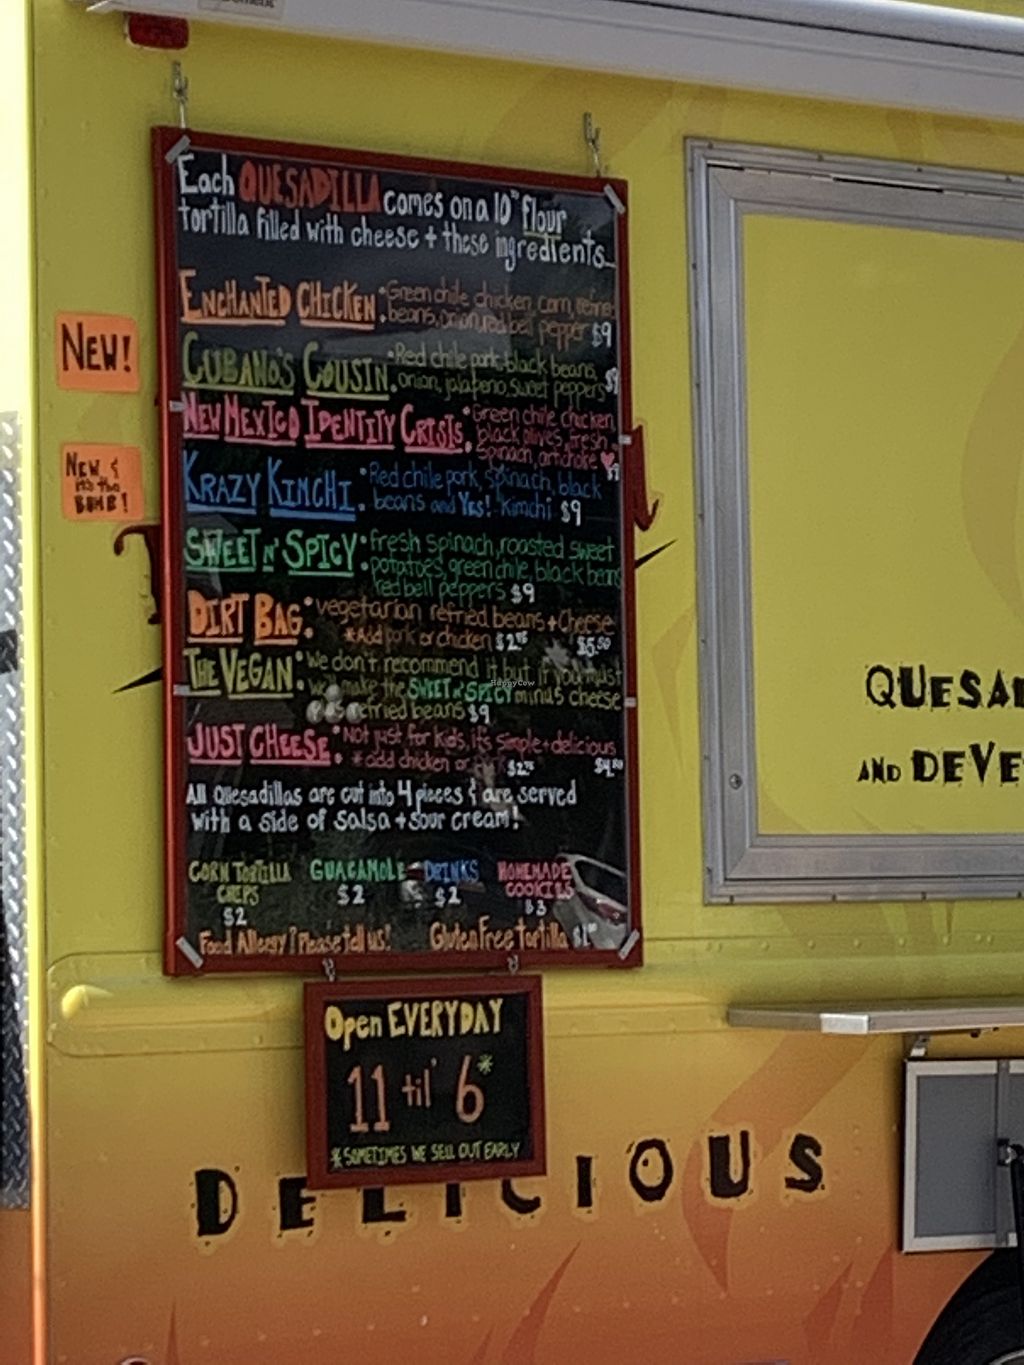 Each QUESADILLA comes on a 10" flour
tortilla filled with cheese + these ingredients...
NEW!
ENCHANTED CHICKEN • Green chile chicken, corn, refried
beans, onion, red bell pepper $9
CUBANO'S COUSIN • Red chile pork, black beans,
onion, jalapeno, sweet peppers $9
NEW MEXICO IDENTITY CRISIS • Green chile chicken,
black olives, fresh
spinach, artichoke
NEW &
it's the
BOMB!
KRAZY KIMCHI • Red chile pork, spinach, black
beans and YES! Kimchi $9
SWEET N' SPICY • fresh spinach, roasted sweet
potatoes, green chile, black beans
red bell peppers $9
DIRT BAG • vegetarian refried beans + Cheese
*Add pork or chicken $2.75 $5.50
THE VEGAN • We don't recommend it but if you must
we'll make the SWEET N' SPICY minus cheese
plus refried beans $9
JUST CHEESE • Not just for kids, it's simple + delicious
*add chicken or pork $2.75 $4.50
All Quesadillas are cut into 4 pieces & are served
with a side of salsa + sour cream!
CORN TORTILLA CHIPS $2
GUACAMOLE $2
DRINKS $2
HOMEMADE COOKIES $3
Food Allergy? Please tell us! Gluten Free tortilla
Open EVERYDAY
11 til' 6*
*SOMETIMES WE SELL OUT EARLY
DELICIOUS
QUESA
AND DEVE
HappyCow